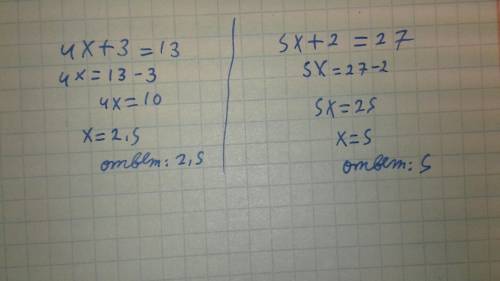 4x+3=13
4x=13-3
4x=10
x=2,5
ответ: 2,5
5x+2=27
5x=27-2
5x=25
x=5
ответ: 5